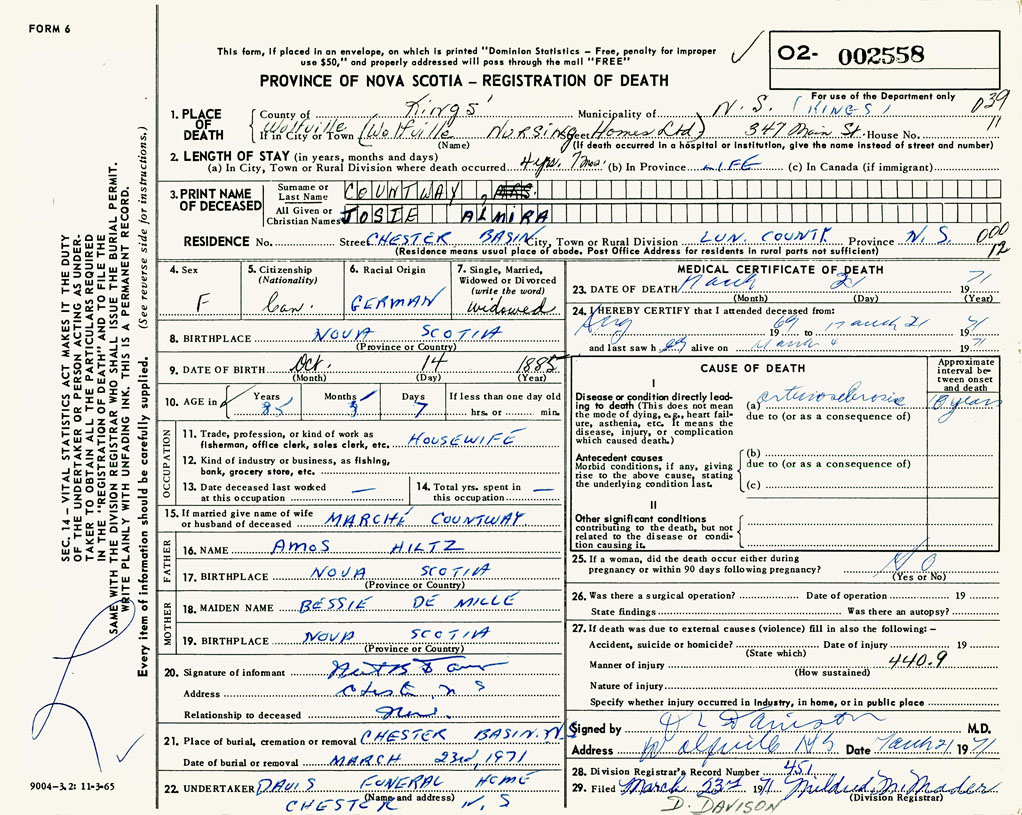 FORM 6
This form, if placed in an envelope, on which is printed "Dominion Statistics – Free, penalty for improper
use $50," and properly addressed will pass through the mail "FREE"
02- 002558
PROVINCE OF NOVA SCOTIA – REGISTRATION OF DEATH
For use of the Department only
039
11
1. PLACE OF DEATH
County of Kings' Municipality of N. S. (KINGS)
Wolfville
If in City or Town (Wolfville Nursing Homes Ltd) Street 347 Main St. House No.
(Name) (If death occurred in a hospital or institution, give the name instead of street and number)
2. LENGTH OF STAY (in years, months and days)
(a) In City, Town or Rural Division where death occurred 4 yrs. 7 mos. (b) In Province LIFE (c) In Canada (if immigrant)
3. PRINT NAME OF DECEASED
Surname or Last Name COUNTWAY, MRS.
All Given or Christian Names JOSIE ALMIRA
RESIDENCE No. Street CHESTER BASIN City, Town or Rural Division LUN. COUNTY Province N. S.
000
12
(Residence means usual place of abode. Post Office Address for residents in rural parts not sufficient)
4. Sex F
5. Citizenship (Nationality) Can.
6. Racial Origin GERMAN
7. Single, Married, Widowed or Divorced (write the word) widowed
8. BIRTHPLACE NOVA SCOTIA
(Province or Country)
9. DATE OF BIRTH Oct. 14 1885
(Month) (Day) (Year)
10. AGE in Years 85 Months 5 Days 7 If less than one day old hrs. or min.
OCCUPATION
11. Trade, profession, or kind of work as fisherman, office clerk, sales clerk, etc. HOUSEWIFE
12. Kind of industry or business, as fishing, bank, grocery store, etc.
13. Date deceased last worked at this occupation —
14. Total yrs. spent in this occupation —
15. If married give name of wife or husband of deceased MARCHÉ COUNTWAY
FATHER
16. NAME AMOS HILTZ
17. BIRTHPLACE NOVA SCOTIA
(Province or Country)
MOTHER
18. MAIDEN NAME BESSIE DE MILLE
19. BIRTHPLACE NOVA SCOTIA
(Province or Country)
20. Signature of informant
Address Chester, N S
Relationship to deceased
21. Place of burial, cremation or removal CHESTER BASIN. N S
Date of burial or removal MARCH 23rd, 1971
22. UNDERTAKER DAVIS FUNERAL HOME
(Name and address)
CHESTER N, S
MEDICAL CERTIFICATE OF DEATH
23. DATE OF DEATH March 21 1971
(Month) (Day) (Year)
24. I HEREBY CERTIFY that I attended deceased from:
Aug 1969 to March 21 1971
and last saw her alive on March 4 1971
CAUSE OF DEATH
Approximate interval between onset and death
I
Disease or condition directly leading to death (This does not mean the mode of dying, e.g., heart failure, asthenia, etc. It means the disease, injury, or complication which caused death.)
(a) arteriosclerosis 10 years
due to (or as a consequence of)
Antecedent causes
Morbid conditions, if any, giving rise to the above cause, stating the underlying condition last.
(b)
due to (or as a consequence of)
(c)
II
Other significant conditions
contributing to the death, but not related to the disease or condition causing it.
25. If a woman, did the death occur either during pregnancy or within 90 days following pregnancy? NO
(Yes or No)
26. Was there a surgical operation? Date of operation 19
State findings Was there an autopsy?
27. If death was due to external causes (violence) fill in also the following:–
Accident, suicide or homicide? Date of injury 19
(State which)
Manner of injury 440.9
(How sustained)
Nature of injury
Specify whether injury occurred in industry, in home, or in public place
Signed by D L Davison M.D.
Address Wolfville NS Date March 21 1971
28. Division Registrar's Record Number 451
29. Filed March 23rd 1971 Mildred M. Mader
(Division Registrar)
D. DAVISON
SEC. 14 – VITAL STATISTICS ACT MAKES IT THE DUTY
OF THE UNDERTAKER OR PERSON ACTING AS UNDER-
TAKER TO OBTAIN ALL THE PARTICULARS REQUIRED
IN THE "REGISTRATION OF DEATH" AND TO FILE THE
SAME WITH THE DIVISION REGISTRAR WHO SHALL ISSUE THE BURIAL PERMIT.
WRITE PLAINLY WITH UNFADING INK. THIS IS A PERMANENT RECORD.
Every item of information should be carefully supplied. (See reverse side for instructions.)
9004-3.2: 11-3-65